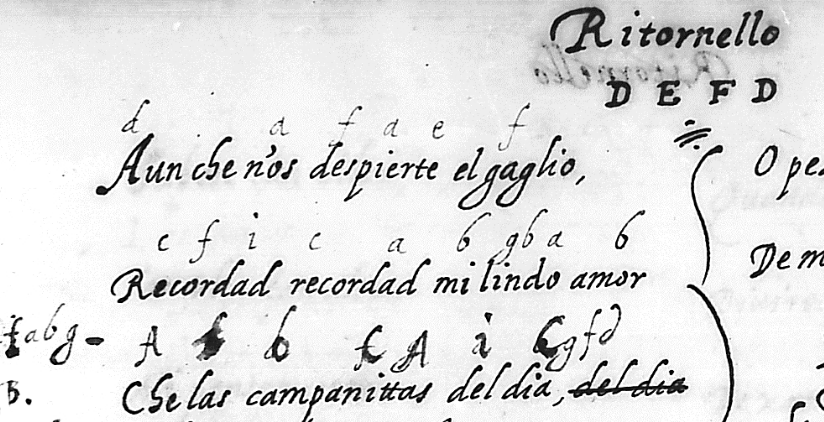 Ritornello
D E F D
d a f a e f
Aun che n'os despierte el gaglio,
O pe
c f i c a b g b a b
Recordad recordad mi lindo amor
De m
f a b g - A b f A i g f d
B. Che las campanittas del dia, del dia